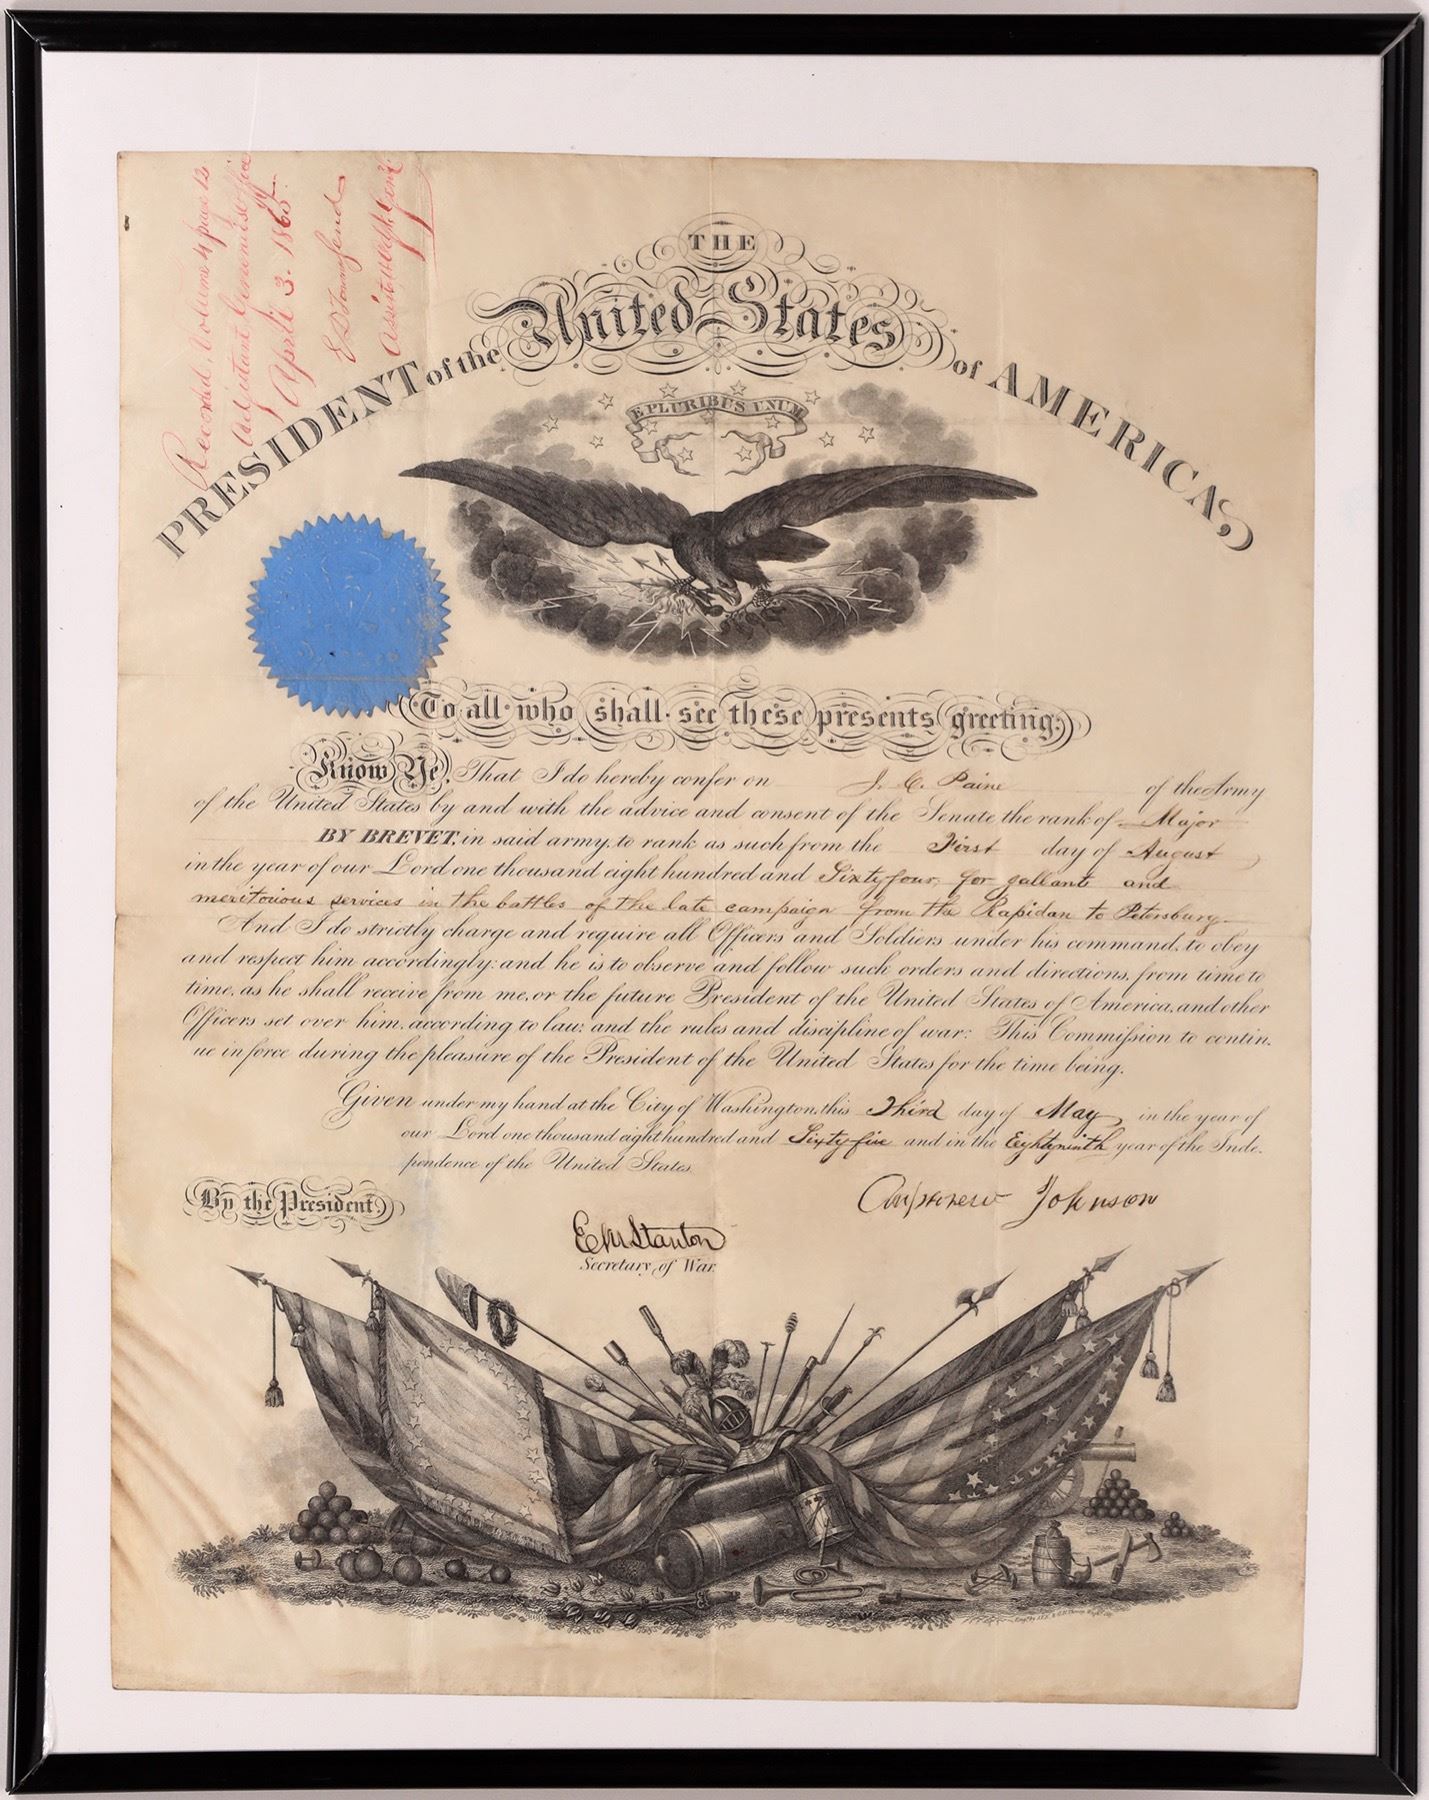 Record, Volume 4 page 12
Adjutant General's Office
April 3. 1865.
E D Townsend
Assist Adjt. Genl
THE
PRESIDENT of the United States of AMERICA,
E PLURIBUS UNUM
To all who shall see these presents greeting:
Know Ye, That I do hereby confer on J. C. Paine of the Army
of the United States by and with the advice and consent of the Senate the rank of Major
BY BREVET, in said army, to rank as such from the First day of August
in the year of our Lord one thousand eight hundred and Sixty four, for gallant and
meritorious services in the battles of the late campaign from the Rapidan to Petersburg
And I do strictly charge and require all Officers and Soldiers under his command, to obey
and respect him accordingly: and he is to observe and follow such orders and directions, from time to
time, as he shall receive from me, or the future President of the United States of America, and other
Officers set over him, according to law; and the rules and discipline of war: This Commission to contin-
ue in force during the pleasure of the President of the United States for the time being.
Given under my hand at the City of Washington, this Third day of May, in the year of
our Lord one thousand eight hundred and Sixty five and in the Eighty ninth year of the Inde-
pendence of the United States.
By the President,
Andrew Johnson
E M Stanton
Secretary of War.